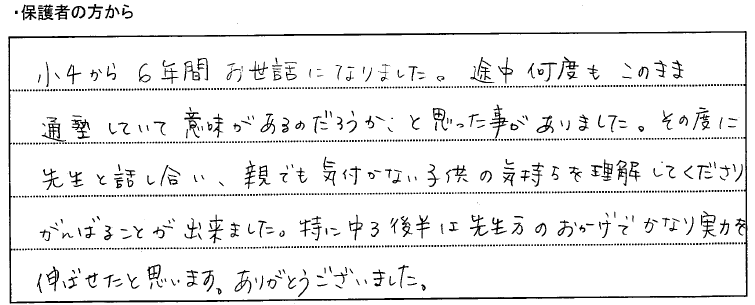 ・保護者の方から
小4から 6年間 お世話になりました。途中 何度も このまま
通塾していて 意味があるのだろうか、と 思った事が ありました。その度に
先生と話し合い、親でも 気付かない 子供の 気持ちを 理解してくださり
がんばることが 出来ました。特に 中3 後半は 先生方の おかげで かなり 実力を
伸ばせたと思います。ありがとうございました。